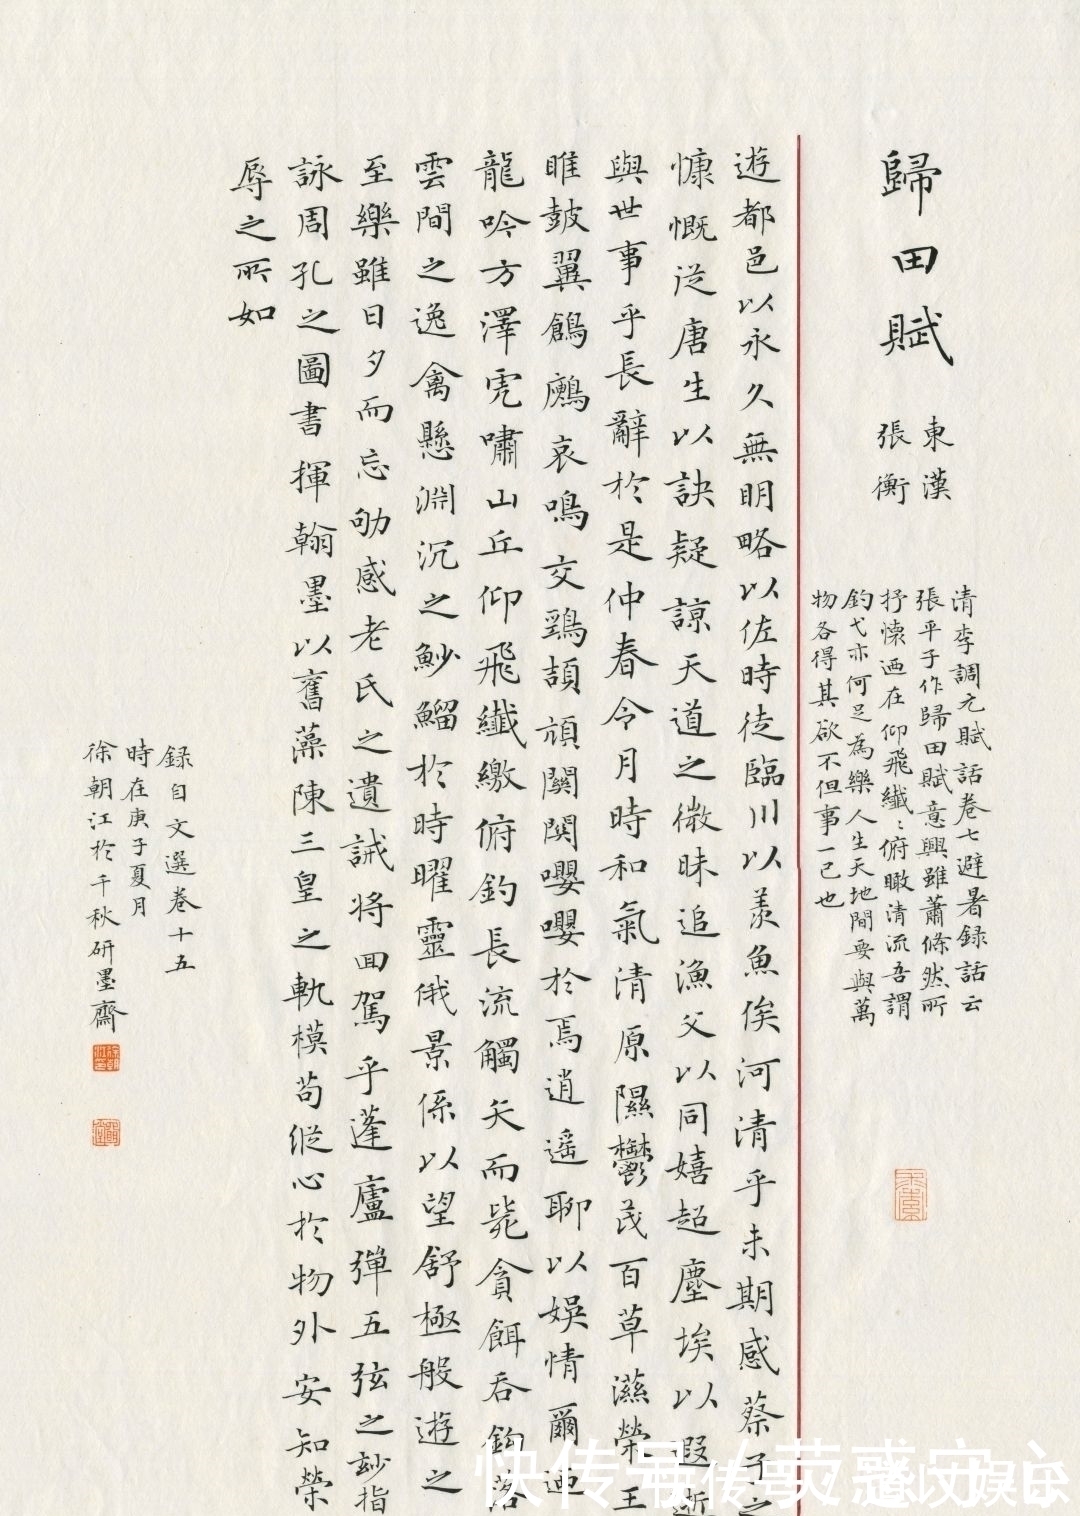 歸田賦
東漢
張衡
清李調元賦話卷七避暑録話云
張平子作歸田賦意興雖蕭條然所
抒懷迺在仰飛纖〻俯瞰清流吾謂
釣弋亦何足為樂人生天地間要與萬
物各得其欲不但事一己也
遊都邑以永久無明略以佐時徒臨川以羨魚俟河清乎未期感蔡子之
慷慨從唐生以訣疑諒天道之微昧追漁父以同嬉超塵埃以遐逝
與世事乎長辭於是仲春令月時和氣清原隰鬱茂百草滋榮王
雎鼓翼鶬鶊哀鳴交頸頡頏關關嚶嚶於焉逍遥聊以娛情爾迺
龍吟方澤虎嘯山丘仰飛纖繳俯釣長流觸矢而斃貪餌吞鉤落
雲間之逸禽懸淵沉之魦鰡於時曜靈俄景係以望舒極般遊之
至樂雖日夕而忘劬感老氏之遺誡將回駕乎蓬廬彈五弦之玅指
詠周孔之圖書揮翰墨以奮藻陳三皇之軌模苟縱心於物外安知榮
辱之所如
録自文選卷十五
時在庚子夏月
徐朝江於千秋研墨齋